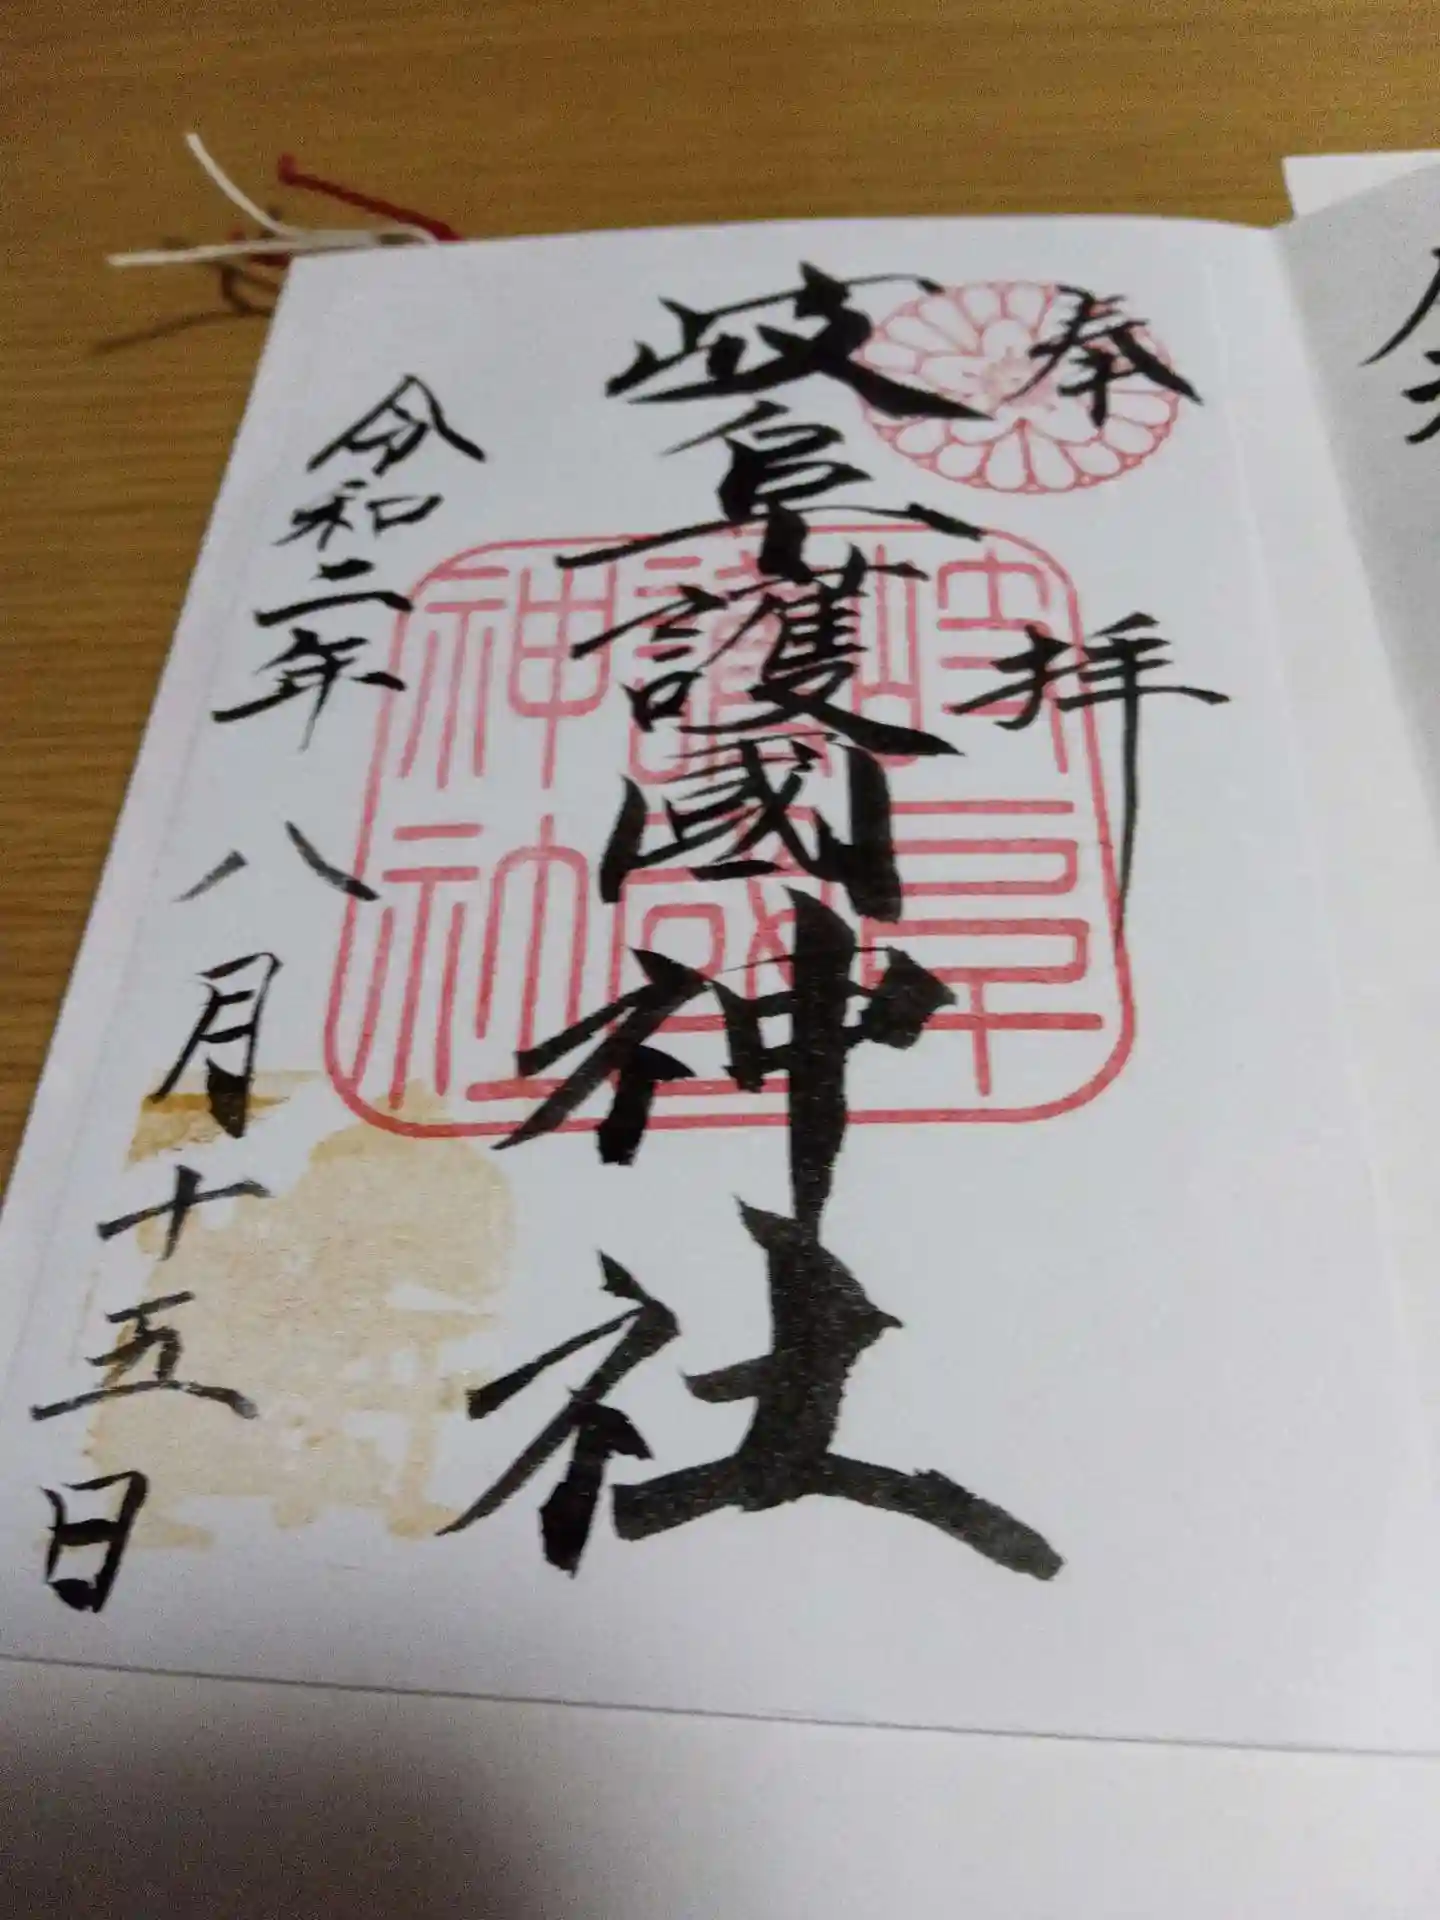 奉拝
岐阜護國神社
令和二年八月十五日
岐阜
護國
神社